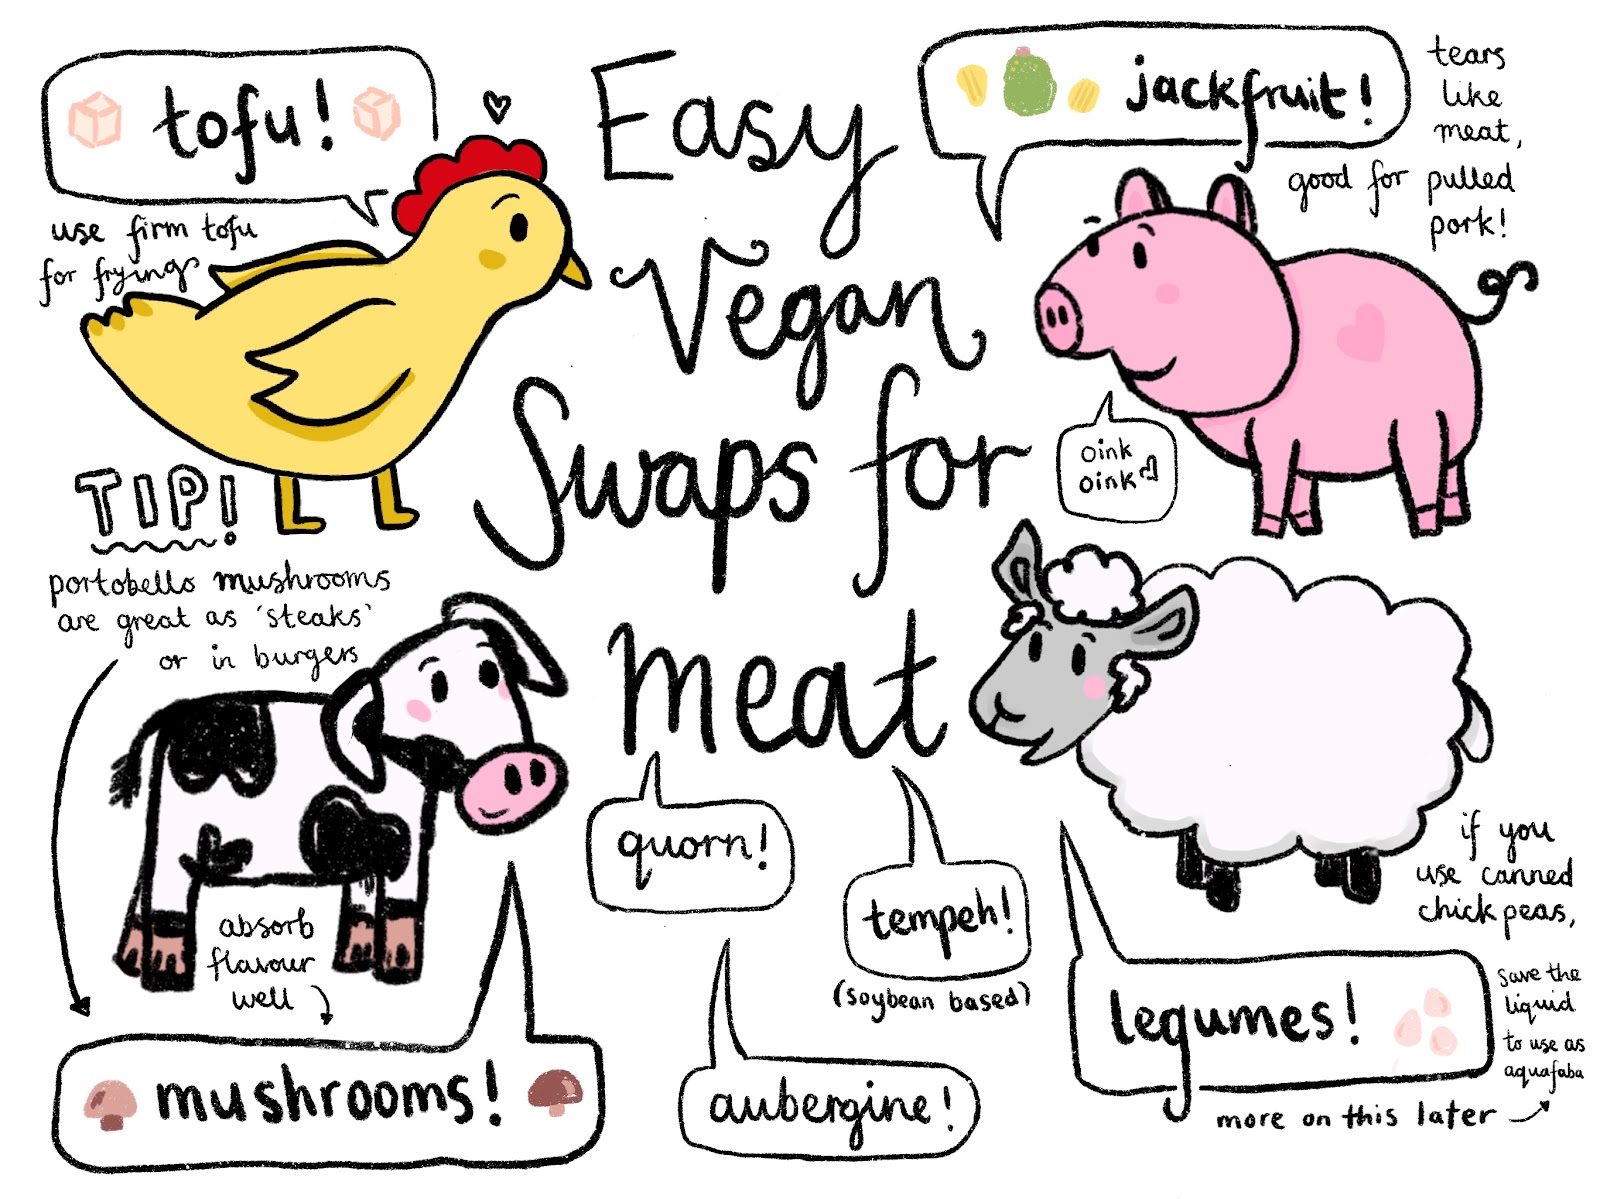 Easy
Vegan
Swaps for
meat
tofu!
use firm tofu
for frying
jackfruit!
tears
like
meat,
good for pulled
pork!
oink
oink
TIP!
portobello mushrooms
are great as 'steaks'
or in burgers
absorb
flavour
well
mushrooms!
quorn!
tempeh!
(soybean based)
aubergine!
legumes!
if you
use canned
chickpeas,
save the
liquid
to use as
aquafaba
more on this later